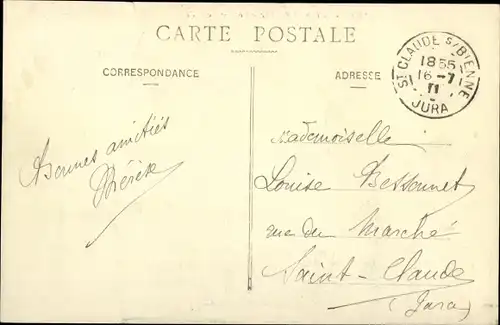 CARTE POSTALE
CORRESPONDANCE
ADRESSE
ST CLAUDE S/BIENNE
18 55
16 - 7
11
JURA
Bonnes amitiés
Mademoiselle
Louise Bessonnet
rue du Marché
Saint-Claude
(Jura)